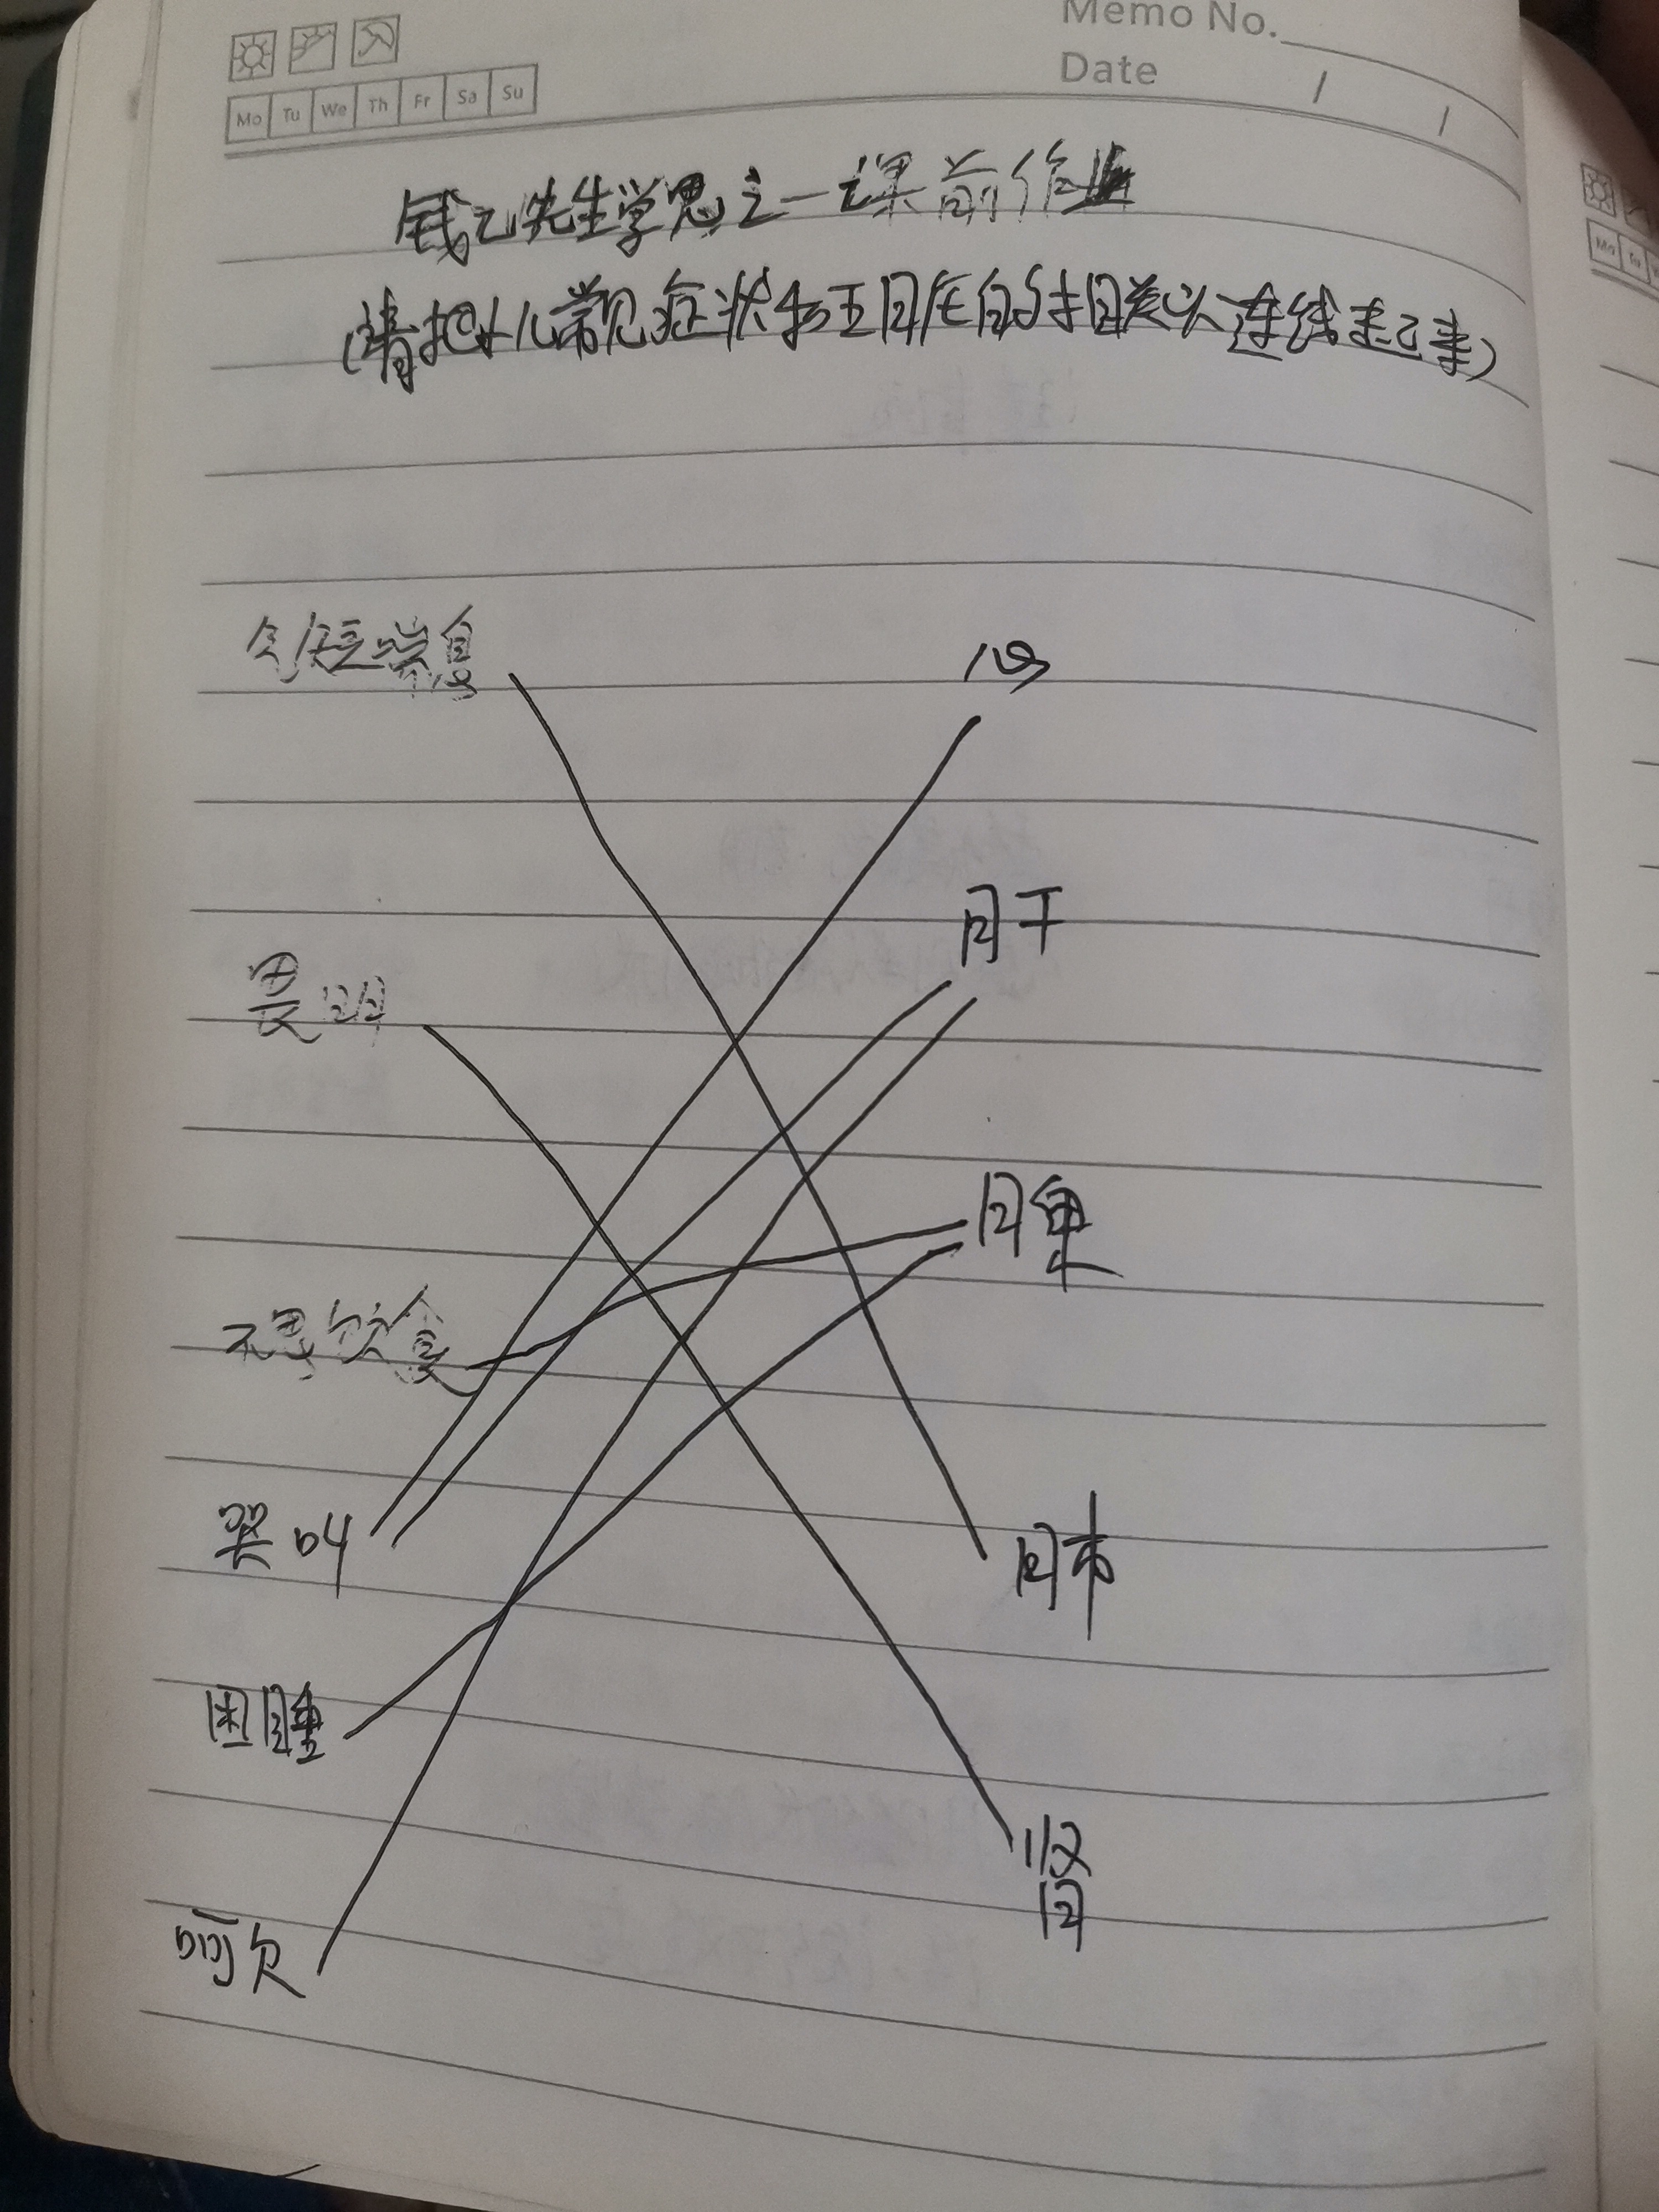 Memo No.
Mo Tu We Th Fr Sa Su
Date / /
钱乙先生学思之一课前作业
(请把小儿常见症状与五脏的相关以连线起来)
气短喘息
心
肝
畏明
脾
不思饮食
哭叫
肺
困睡
肾
呵欠
Mo Tu